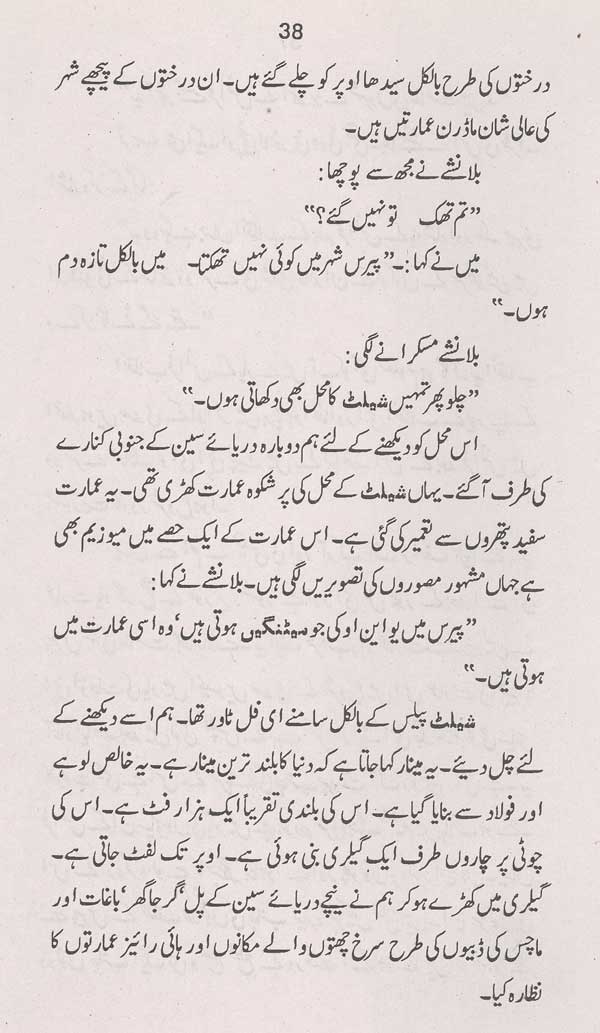 38
درختوں کی طرح بالکل سیدھا اوپر کو چلے گئے ہیں۔ ان درختوں کے پیچھے شہر
کی عالی شان ماڈرن عمارتیں ہیں۔
بلانشے نے مجھ سے پوچھا:
”تم تھک تو نہیں گئے؟“
میں نے کہا:۔ ”پیرس شہر میں کوئی نہیں تھکتا۔ میں بالکل تازہ دم
ہوں۔“
بلانشے مسکرانے لگی:
”چلو پھر تمہیں شیلٹ کا محل بھی دکھاتی ہوں۔“
اس محل کو دیکھنے کے لئے ہم دوبارہ دریائے سین کے جنوبی کنارے
کی طرف آ گئے۔ یہاں شیلٹ کے محل کی پرشکوہ عمارت کھڑی تھی۔ یہ عمارت
سفید پتھروں سے تعمیر کی گئی ہے۔ اس عمارت کے ایک حصے میں میوزیم بھی
ہے جہاں مشہور مصوروں کی تصویریں لگی ہیں۔ بلانشے نے کہا:
”پیرس میں یو این او کی جو میٹنگیں ہوتی ہیں‘ وہ اسی عمارت میں
ہوتی ہیں۔“
شیلٹ پیلس کے بالکل سامنے ای فل ٹاور تھا۔ ہم اسے دیکھنے کے
لئے چل دیئے۔ یہ مینار کہا جاتا ہے کہ دنیا کا بلند ترین مینار ہے۔ یہ خالص لوہے
اور فولاد سے بنایا گیا ہے۔ اس کی بلندی تقریباً ایک ہزار فٹ ہے۔ اس کی
چوٹی پر چاروں طرف ایک گیلری بنی ہوئی ہے۔ اوپر تک لفٹ جاتی ہے۔
گیلری میں کھڑے ہو کر ہم نے نیچے دریائے سین کے پل‘ گرجا گھر‘ باغات اور
ماچس کی ڈبیوں کی طرح سرخ چھتوں والے مکانوں اور ہائی رائیز عمارتوں کا
نظارہ کیا۔